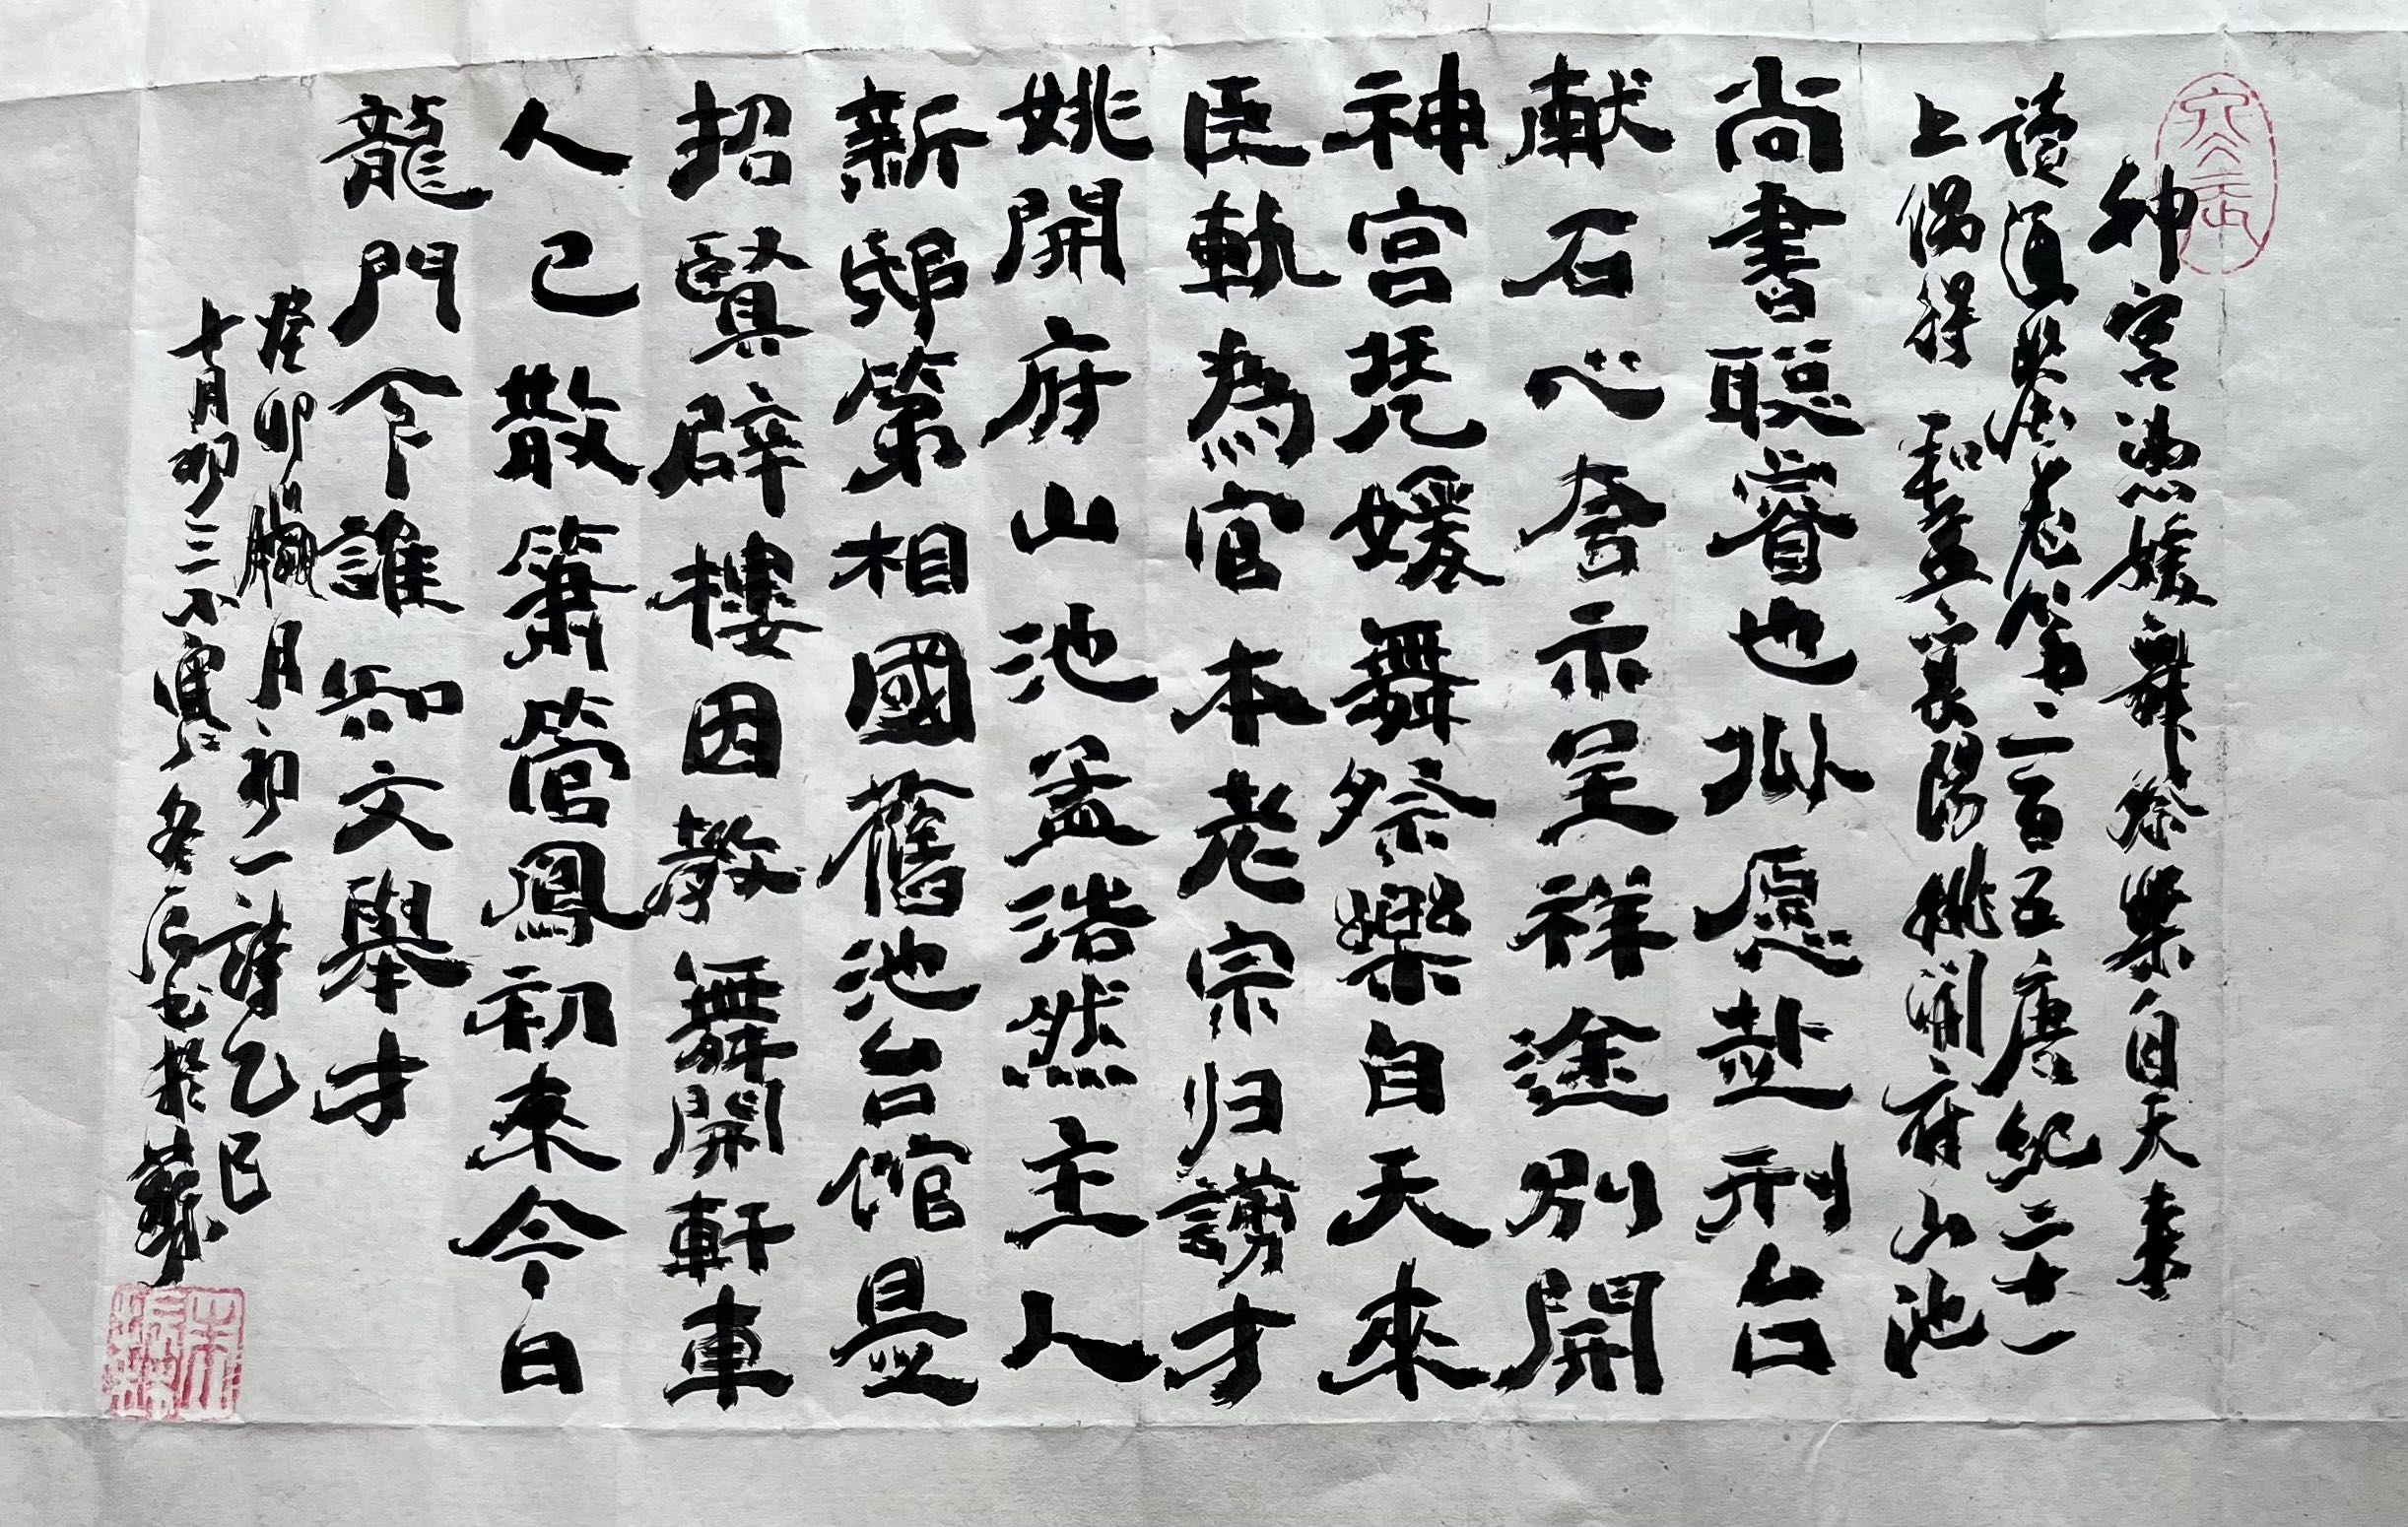 神宫凴媛舞祭樂自天來
讀通鑒卷第二百五唐紀二十一
上偶得 和孟襄陽姚開府山池
尚書聪睿也擬愿赴刑台
献石心舍示呈祥途别開
神宫凴媛舞祭樂自天來
臣軌為官本老宗归謗才
姚開府山池孟浩然主人
新邸第相國舊池台馆是
招賢辟樓因教舞開軒車
人已散簫管鳳初來今日
龍門下誰知文舉才
癸卯臘月初一詩乙巳
七月初三不寐冬辰书於蘇